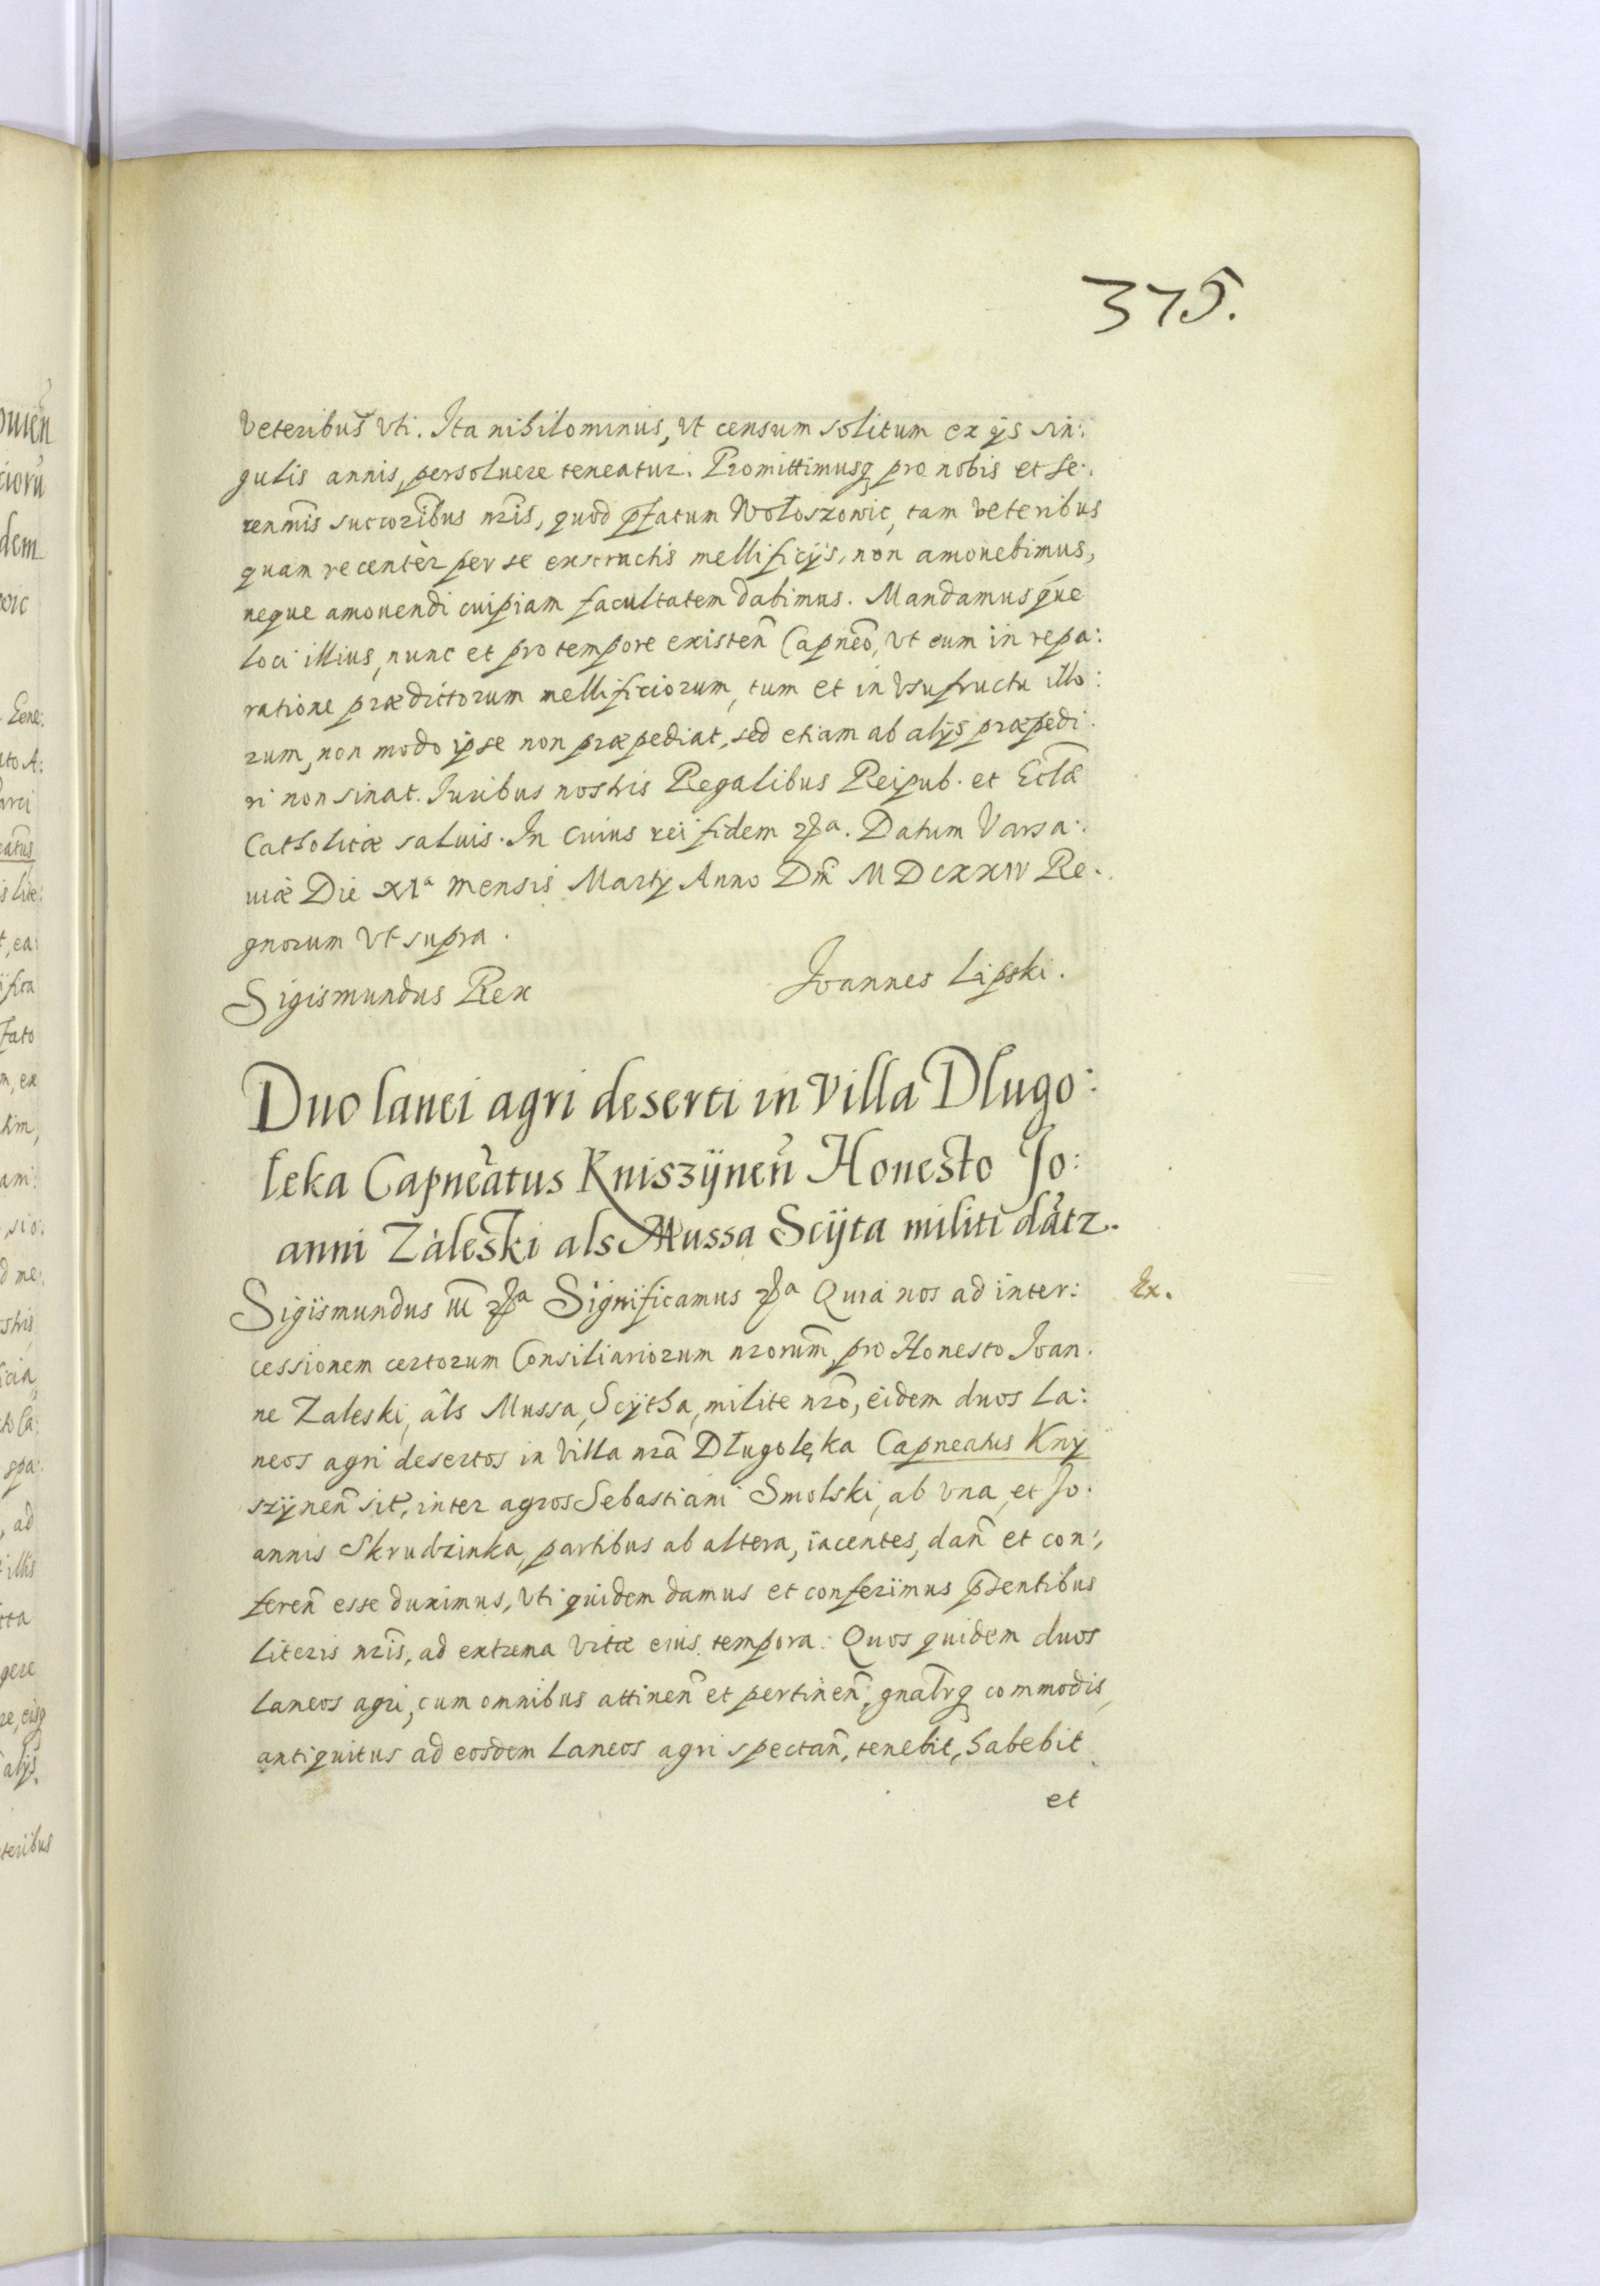 375.
veteribus vti. Ita nihilominus, vt censum solitum ex ijs sin:
gulis annis, persoluere teneatur. Promittimusq pro nobis et Se:
renmis succoribus nris, quod pfatum Wołoszowic, tam veteribus
quam recentèr per se exstructis mellificijs, non amouebimus,
neque amouendi cuipiam facultatem dabimus. Mandamus que
loci illius, nunc et pro tempore existen Capneo, vt eum in repa:
ratione prædictorum mellificiorum, tum et in vsufructu illo:
rum, non modo ipse non præpediat, sed etiam ab alijs præpedi
ri non sinat. Iuribus nostris Regalibus Reipub. et Eclæ
Catholicæ saluis. In cuius rei fidem &a. Datum Varsa:
uiæ Die XIa mensis Martij Anno Dni MDCXXIV Re:
gnorum vt supra.
Sigismundus Rex Joannes Lipski.
Duo lanei agri deserti in villa Dlugo:
leka Capneatus Kniszÿnen Honesto Jo:
anni Zaleski als Mussa Scÿta militi datr.
Sigismundus III &a Significamus &a Quia nos ad inter: Ex.
cessionem certorum Consiliariorum nrorum, pro Honesto Joan.
ne Zaleski, als Mussa, Scÿtha, milite nro, eidem duos la:
neos agri desertos in villa nra Długolęka Capneatus Knÿ
szÿnen sit, inter agros Sebastiani Smolski, ab vna, et Jo.
annis Skrudzinka, partibus ab altera, iacentes, dan et con:
feren esse duximus, vti quidem damus et conferimus psentibus
literis nris, ad extrema vitæ eius tempora. Quos quidem duos
laneos agri, cum omnibus attinen et pertinen, gnalrq commodis,
antiquitus ad eosdem laneos agri spectan, tenebit, habebit
et